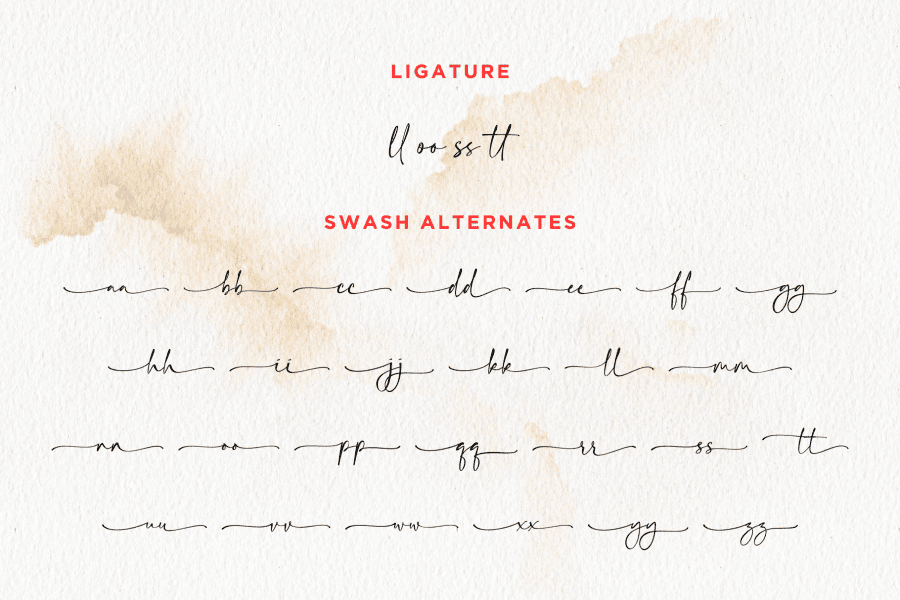 LIGATURE
ll oo ss tt
SWASH ALTERNATES
aa bb cc dd ee ff gg
hh ii jj kk ll mm
nn oo pp qq rr ss tt
uu vv ww xx yy zz